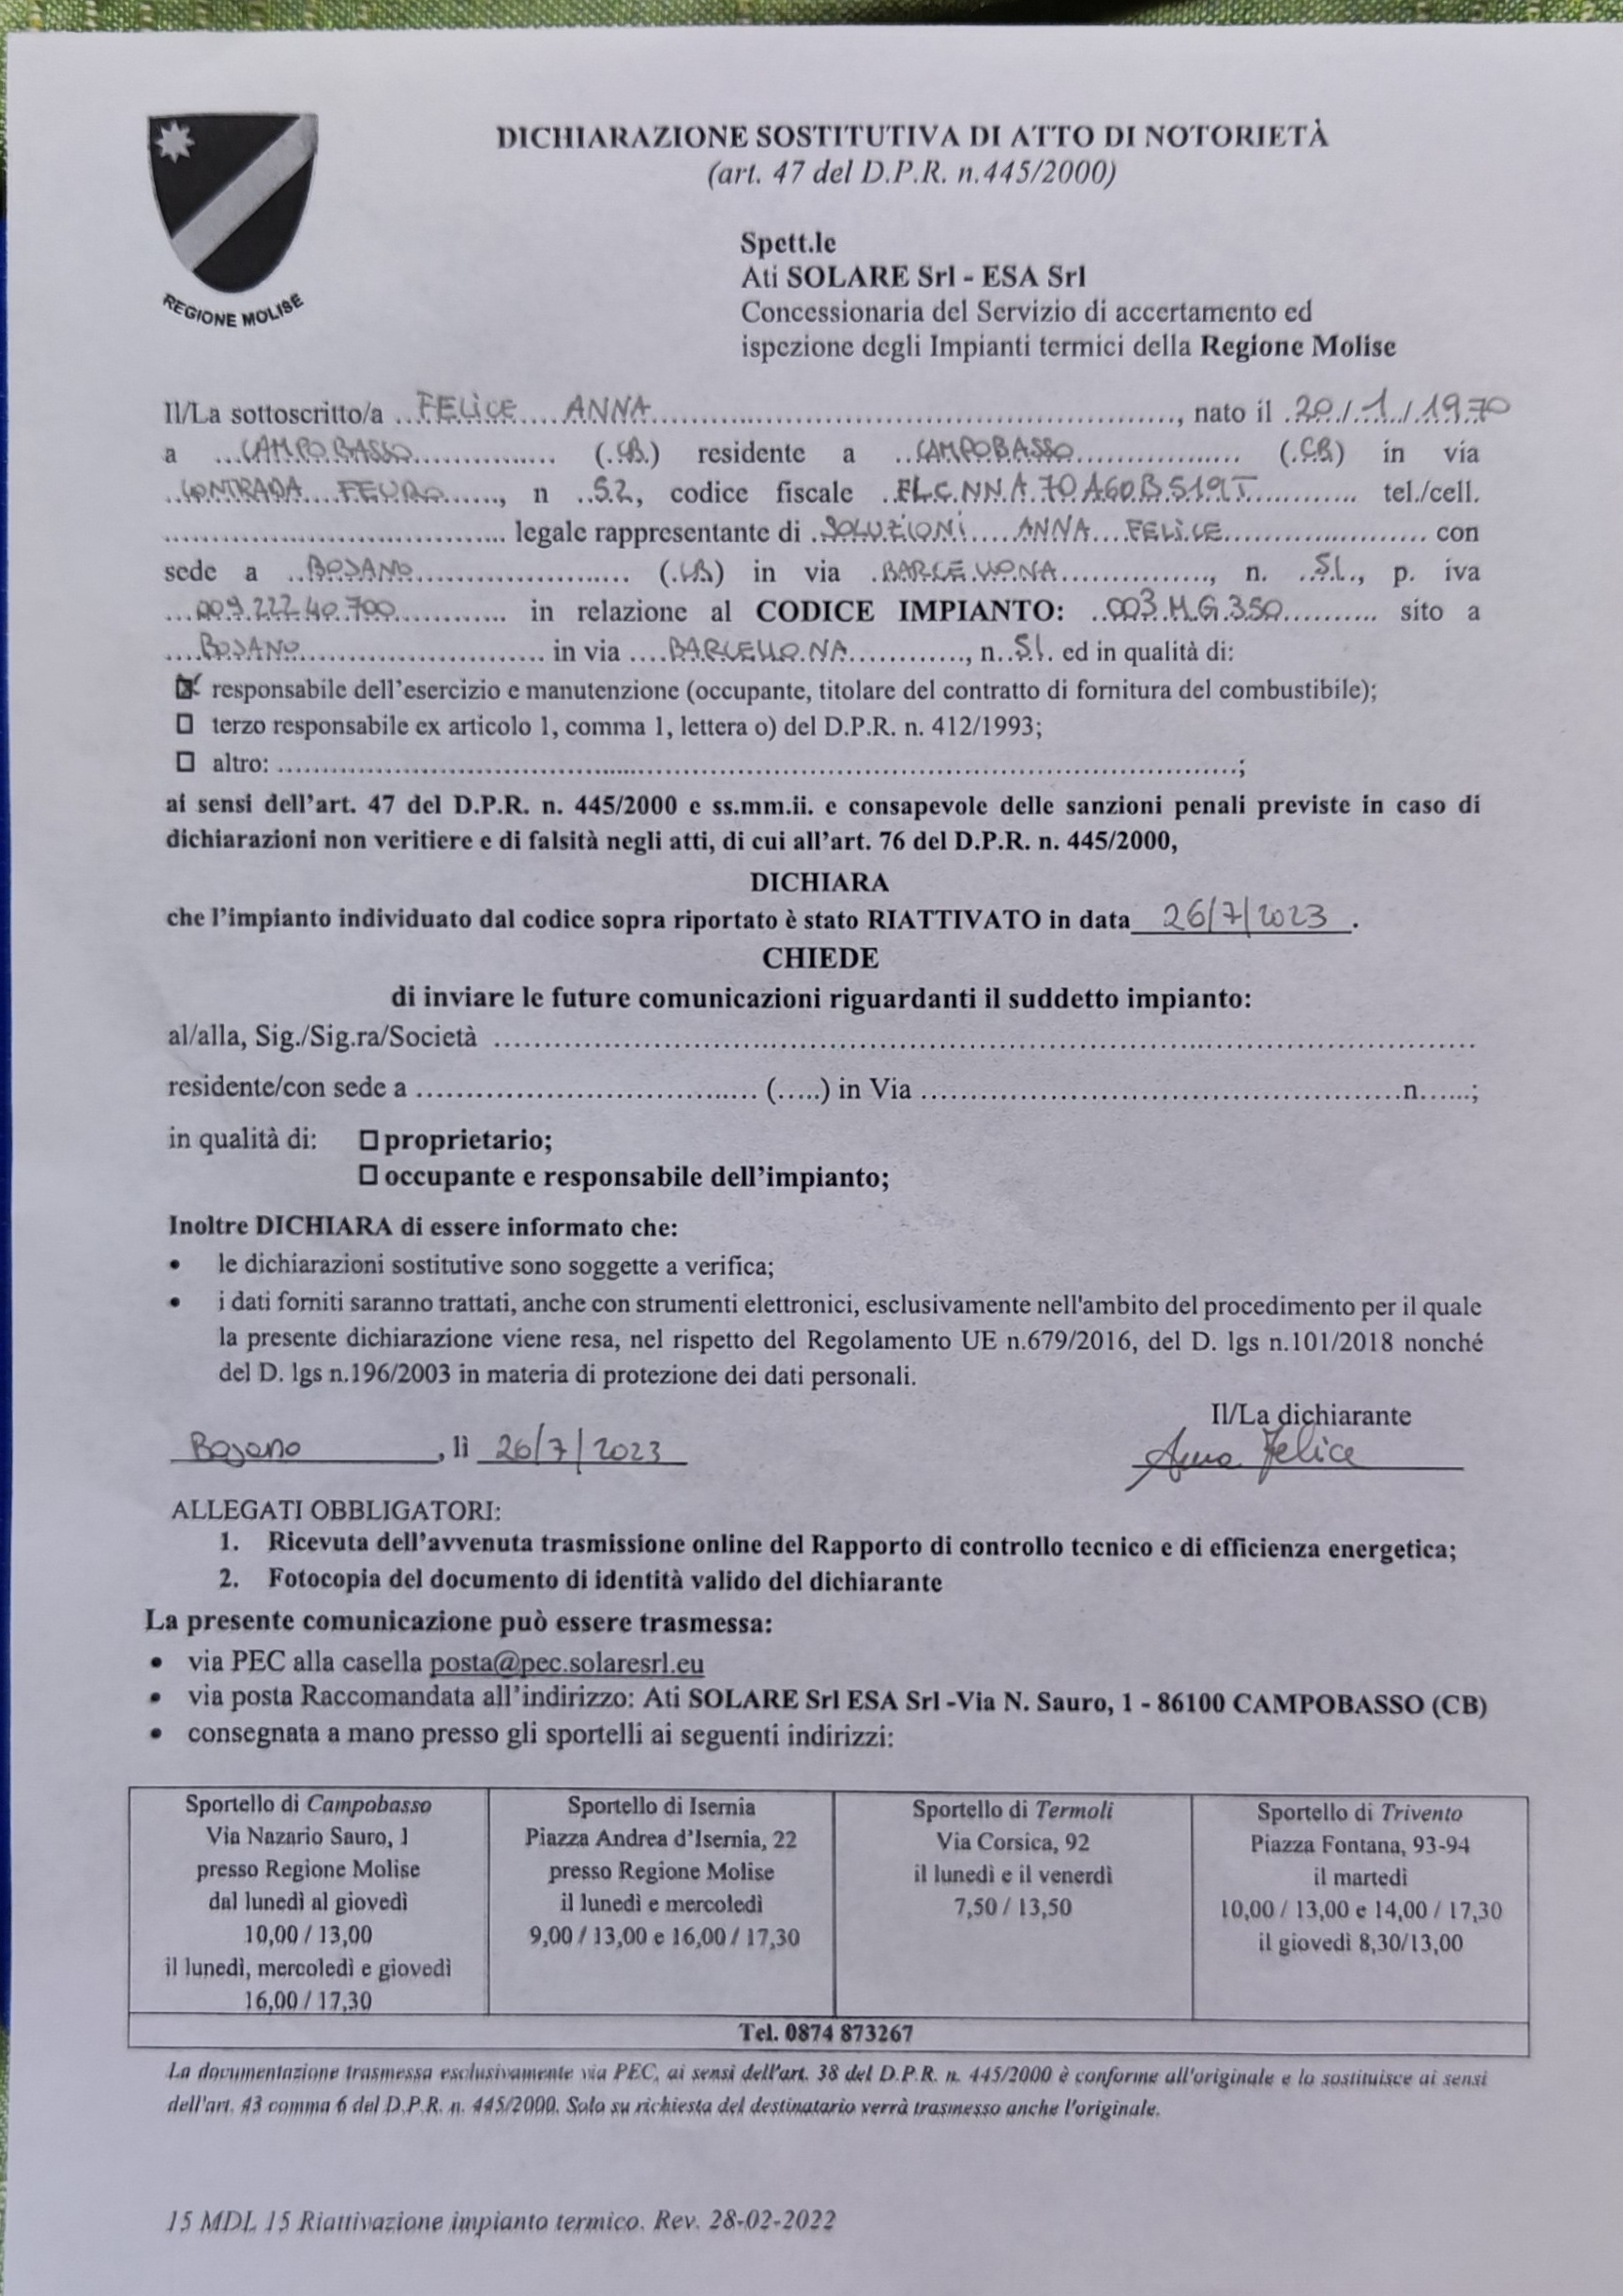 DICHIARAZIONE SOSTITUTIVA DI ATTO DI NOTORIETÀ
(art. 47 del D.P.R. n.445/2000)
REGIONE MOLISE
Spett.le
Ati SOLARE Srl - ESA Srl
Concessionaria del Servizio di accertamento ed
ispezione degli Impianti termici della Regione Molise
Il/La sottoscritto/a FELICE ANNA, nato il 20/1/1970
a CAMPOBASSO (CB) residente a CAMPOBASSO (CB) in via
CONTRADA FEUDO, n 52, codice fiscale FLCNNA70A60B519T tel./cell.
legale rappresentante di SOLUZIONI ANNA FELICE con
sede a BOJANO (CB) in via BARCELLONA, n. p. iva
00922240700 in relazione al CODICE IMPIANTO: 003MG350 sito a
BOJANO in via BARCELLONA, n. ed in qualità di:
responsabile dell'esercizio e manutenzione (occupante, titolare del contratto di fornitura del combustibile);
terzo responsabile ex articolo 1, comma 1, lettera o) del D.P.R. n. 412/1993;
altro: ;
ai sensi dell'art. 47 del D.P.R. n. 445/2000 e ss.mm.ii. e consapevole delle sanzioni penali previste in caso di
dichiarazioni non veritiere e di falsità negli atti, di cui all'art. 76 del D.P.R. n. 445/2000,
DICHIARA
che l'impianto individuato dal codice sopra riportato è stato RIATTIVATO in data 26/7/2023.
CHIEDE
di inviare le future comunicazioni riguardanti il suddetto impianto:
al/alla, Sig./Sig.ra/Società
residente/con sede a (.....) in Via n......;
in qualità di: proprietario;
occupante e responsabile dell'impianto;
Inoltre DICHIARA di essere informato che:
• le dichiarazioni sostitutive sono soggette a verifica;
• i dati forniti saranno trattati, anche con strumenti elettronici, esclusivamente nell'ambito del procedimento per il quale
la presente dichiarazione viene resa, nel rispetto del Regolamento UE n.679/2016, del D. lgs n.101/2018 nonché
del D. lgs n.196/2003 in materia di protezione dei dati personali.
Il/La dichiarante
Bojano, lì 26/7/2023 Anna Felice
ALLEGATI OBBLIGATORI:
1. Ricevuta dell'avvenuta trasmissione online del Rapporto di controllo tecnico e di efficienza energetica;
2. Fotocopia del documento di identità valido del dichiarante
La presente comunicazione può essere trasmessa:
• via PEC alla casella posta@pec.solaresrl.eu
• via posta Raccomandata all'indirizzo: Ati SOLARE Srl ESA Srl -Via N. Sauro, 1 - 86100 CAMPOBASSO (CB)
• consegnata a mano presso gli sportelli ai seguenti indirizzi:
Sportello di Campobasso
Via Nazario Sauro, 1
presso Regione Molise
dal lunedì al giovedì
10,00 / 13,00
il lunedì, mercoledì e giovedì
16,00 / 17,30
Sportello di Isernia
Piazza Andrea d'Isernia, 22
presso Regione Molise
il lunedì e mercoledì
9,00 / 13,00 e 16,00 / 17,30
Sportello di Termoli
Via Corsica, 92
il lunedì e il venerdì
7,50 / 13,50
Sportello di Trivento
Piazza Fontana, 93-94
il martedì
10,00 / 13,00 e 14,00 / 17,30
il giovedì 8,30/13,00
Tel. 0874 873267
La documentazione trasmessa esclusivamente via PEC, ai sensi dell'art. 38 del D.P.R. n. 445/2000 è conforme all'originale e lo sostituisce ai sensi
dell'art. 43 comma 6 del D.P.R. n. 445/2000. Solo su richiesta del destinatario verrà trasmesso anche l'originale.
15 MDL 15 Riattivazione impianto termico. Rev. 28-02-2022